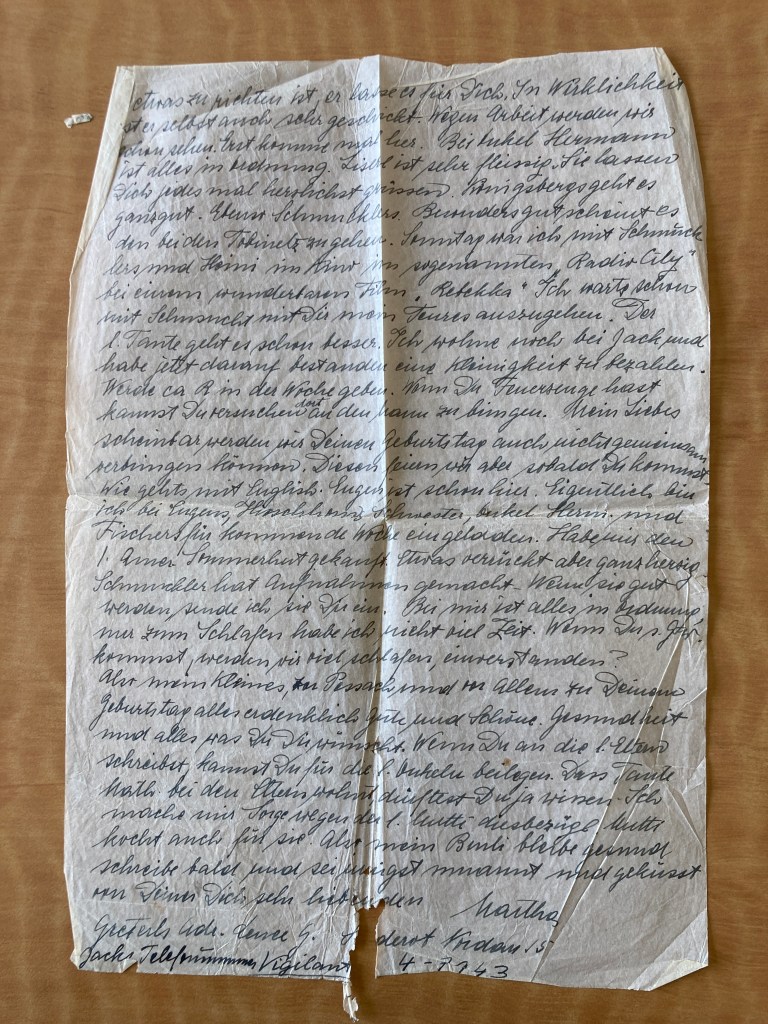 etwas zu richten ist, er lasse es für Dich. In Wirklichkeit
ist er selbst auch sehr geschickt. Wegen Arbeit werden wir
schon sehen. Erst komme mal her. Bei Onkel Hermann
ist alles in Ordnung. Liesel ist sehr fleissig. Sie lassen
Dich jedes mal herzlichst grüssen. Königsbergs geht es
ganz gut. Ebenso Schmucklers. Besonders gut scheint es
den beiden zu gehen. Sonntag war ich mit Schmuck
lers und Heini im Kino im sogenannten "Radio City"
bei einem wunderbaren Film "Rebekka" Ich warte schon
mit Sehnsucht mit Dir mein Teures auszugehen. Der
l. Tante geht es schon besser. Ich wohne noch bei Jack und
habe jetzt darauf bestanden eine Kleinigkeit zu bezahlen.
Werde ca in der Woche geben. Wenn Du Feuerzeuge hast
kannst Du versuchen dort an den Mann zu bringen. Mein Liebes
scheinbar werden wir Deinen Geburtstag auch nicht gemeinsam
verbringen können. Diesen feiern wir aber sobald Du kommst.
Wie gehts mit English. Eugen ist schon hier. Eigentlich bin
ich bei Eugens, Schwester, Onkel Herm. und
Fischers für kommende Woche eingeladen. Habe mir den
1. Amer. Sommerhut gekauft. Etwas verrückt aber ganz herzig.
Schmuckler hat Aufnahmen gemacht. Wenn sie gut
werden sende ich sie Dir ein. Bei mir ist alles in Ordnung
nur zum Schlafen habe ich nicht viel Zeit. Wenn Du s. G. w.
kommst, werden wir viel schlafen, einverstanden?
Also mein Kleines, zu Pessach und vor Allem zu Deinem
Geburtstag alles erdenklich Gute und Schöne. Gesundheit
und alles was Du Dir wünscht. Wenn Du an die l. Eltern
schreibst, kannst Du für die l. Onkeln beilegen. Dass Tante
Math. bei den Eltern wohnt, dürftest Du ja wissen. Ich
mache mir Sorge wegen der l. Mutti diesbezügl. Mutti
kocht auch für sie. Also mein Burli bleibe gesund
schreibe bald und sei innigst umarmt und geküsst
von Deiner Dich sehr liebenden Martha
Gretels Adr. Nordau 15
Jacks Telefonnummer Vigilant 4-7943